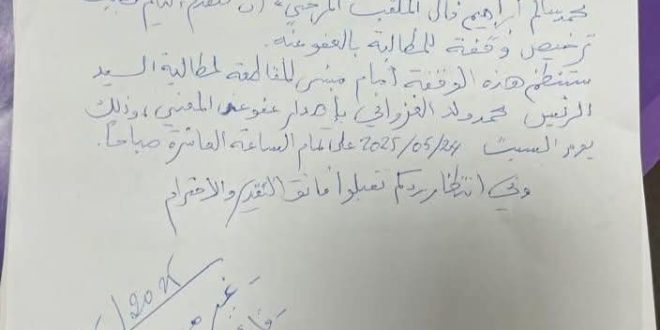 محمد سالم إبراهيم فال الملقب المرحبي، أن نتقدم إليكم بطلب
ترخيص وقفة للمطالبة بالعفو عنه.
ستنظم هذه الوقفة أمام مبنى المقاطعة لمطالبة السيد
الرئيس محمد ولد الغزواني بإصدار عفو عن المعني، وذلك
يوم السبت 2025/05/24 على تمام الساعة العاشرة صباحا.
وفي انتظار ردكم تقبلوا فائق التقدير والاحترام